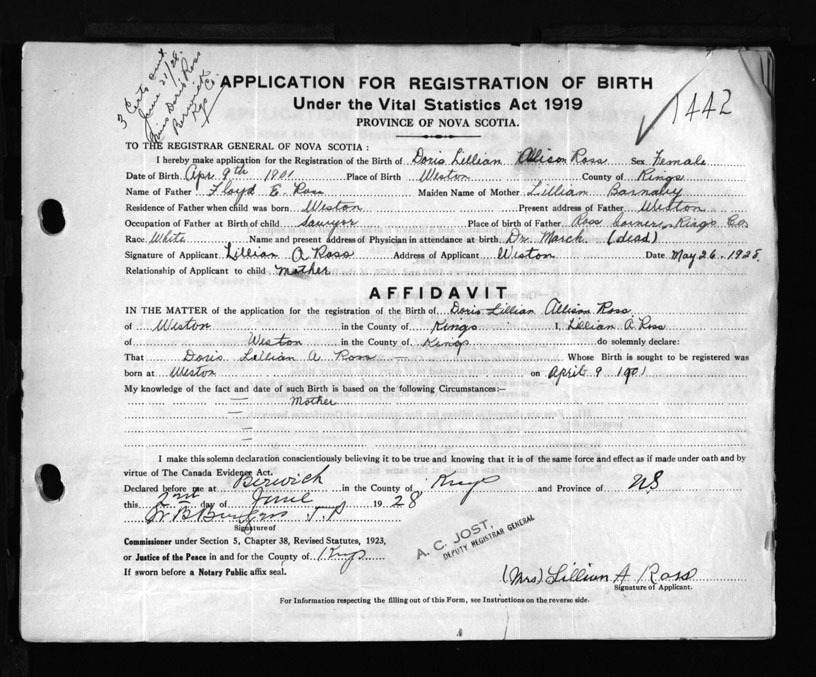 3 Certs out
June 21/28
Miss Doris Ross
Berwick
Kgs Co.
APPLICATION FOR REGISTRATION OF BIRTH
Under the Vital Statistics Act 1919
PROVINCE OF NOVA SCOTIA.
1442
TO THE REGISTRAR GENERAL OF NOVA SCOTIA :
I hereby make application for the Registration of the Birth of Doris Lillian Allison Ross Sex Female
Date of Birth Apr 9th 1901 Place of Birth Weston County of Kings
Name of Father Floyd E. Ross Maiden Name of Mother Lillian Barnaby
Residence of Father when child was born Weston Present address of Father Weston
Occupation of Father at Birth of child Sawyer Place of birth of Father Ross Corner Kings Co.
Race White Name and present address of Physician in attendance at birth Dr. March (dead)
Signature of Applicant Lillian A Ross Address of Applicant Weston Date May 26 - 1928.
Relationship of Applicant to child Mother
AFFIDAVIT
IN THE MATTER of the application for the registration of the Birth of Doris Lillian Allison Ross
of Weston in the County of Kings I, Lillian A. Ross
of Weston in the County of Kings do solemnly declare:
That Doris Lillian A Ross Whose Birth is sought to be registered was
born at Weston on April 9 1901
My knowledge of the fact and date of such Birth is based on the following Circumstances:—
Mother
I make this solemn declaration conscientiously believing it to be true and knowing that it is of the same force and effect as if made under oath and by
virtue of The Canada Evidence Act.
Declared before me at Berwick in the County of Kings and Province of NS
this 2nd day of June 1928
W B Burgess J.P
Signature of
Commissioner under Section 5, Chapter 38, Revised Statutes, 1923,
or Justice of the Peace in and for the County of Kings
If sworn before a Notary Public affix seal.
A. C. JOST,
DEPUTY REGISTRAR GENERAL
(Mrs) Lillian A Ross
Signature of Applicant.
For Information respecting the filling out of this Form, see Instructions on the reverse side.